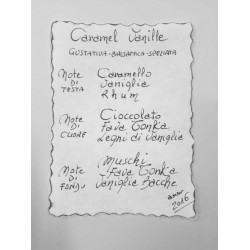 Caramel Vanille
GUSTATIVA-BALSAMICA-SPEZIATA
NOTE DI TESTA
Caramello
Vaniglia
Rhum
NOTE DI CUORE
Cioccolato
Fava Tonka
Legni di Vaniglia
NOTE DI FONDO
Muschi
Fava Tonka
Vaniglia Bacche
anno 2016